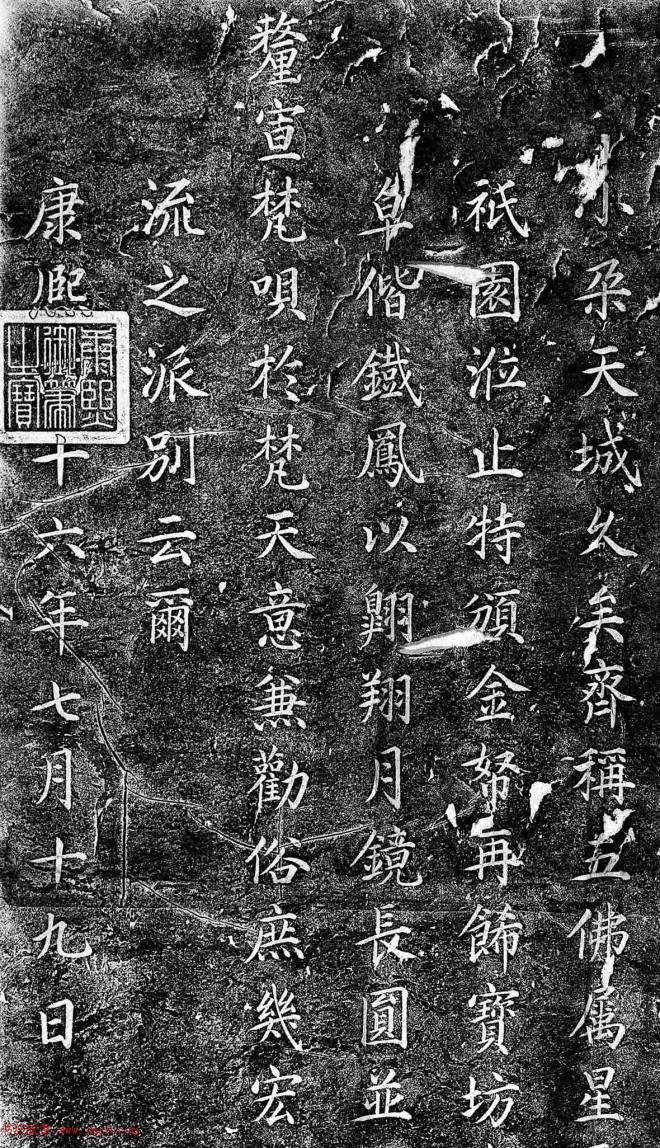 朶天城久矣齊稱五佛属星
祇園涖止特頒金帑再餙寶坊
阜偕鐵鳳以翺翔月鏡長圓並
釐宣梵唄於梵天意兼勸俗庶幾宏
流之派別云爾
康熙十六年七月十九日
康熙御筆之寶